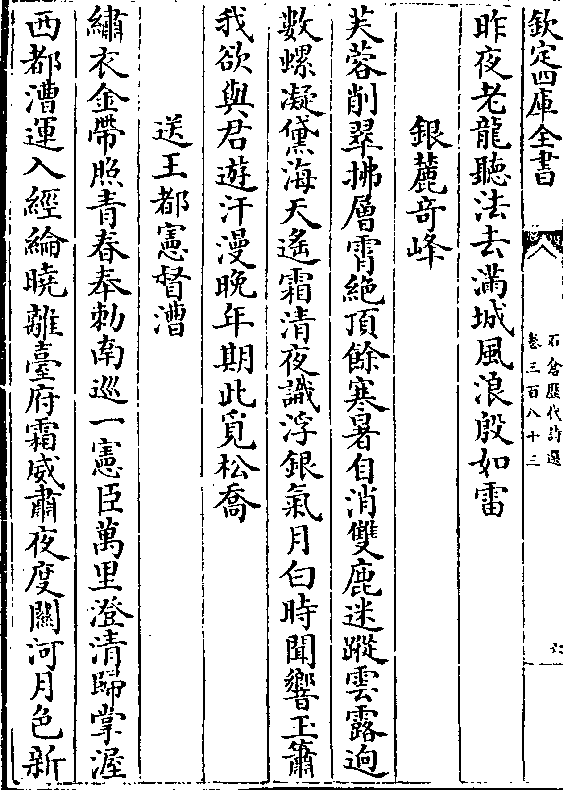 欽定四庫全書
石倉歷代詩選
卷三百八十三
六
昨夜老龍聽法去滿城風浪殷如雷
銀麓竒峰
芙蓉削翠拂層霄絶頂餘寒暑自消雙鹿迷蹤雲露逈
數螺凝黛海天遙霜清夜識浮銀氣月白時聞響玉簫
我欲與君遊汗漫晚年期此覓松喬
送王都憲督漕
繡衣金帶照青春奉勅南巡一憲臣萬里澄清歸掌渥
西都漕運入經綸曉離臺府霜威肅夜度關河月色新